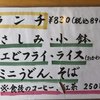 ランチ ¥820(税込
さしみ 小鉢
エビフライ・ライス
ミニうどん、そば
※食後のコーヒー、紅茶 250